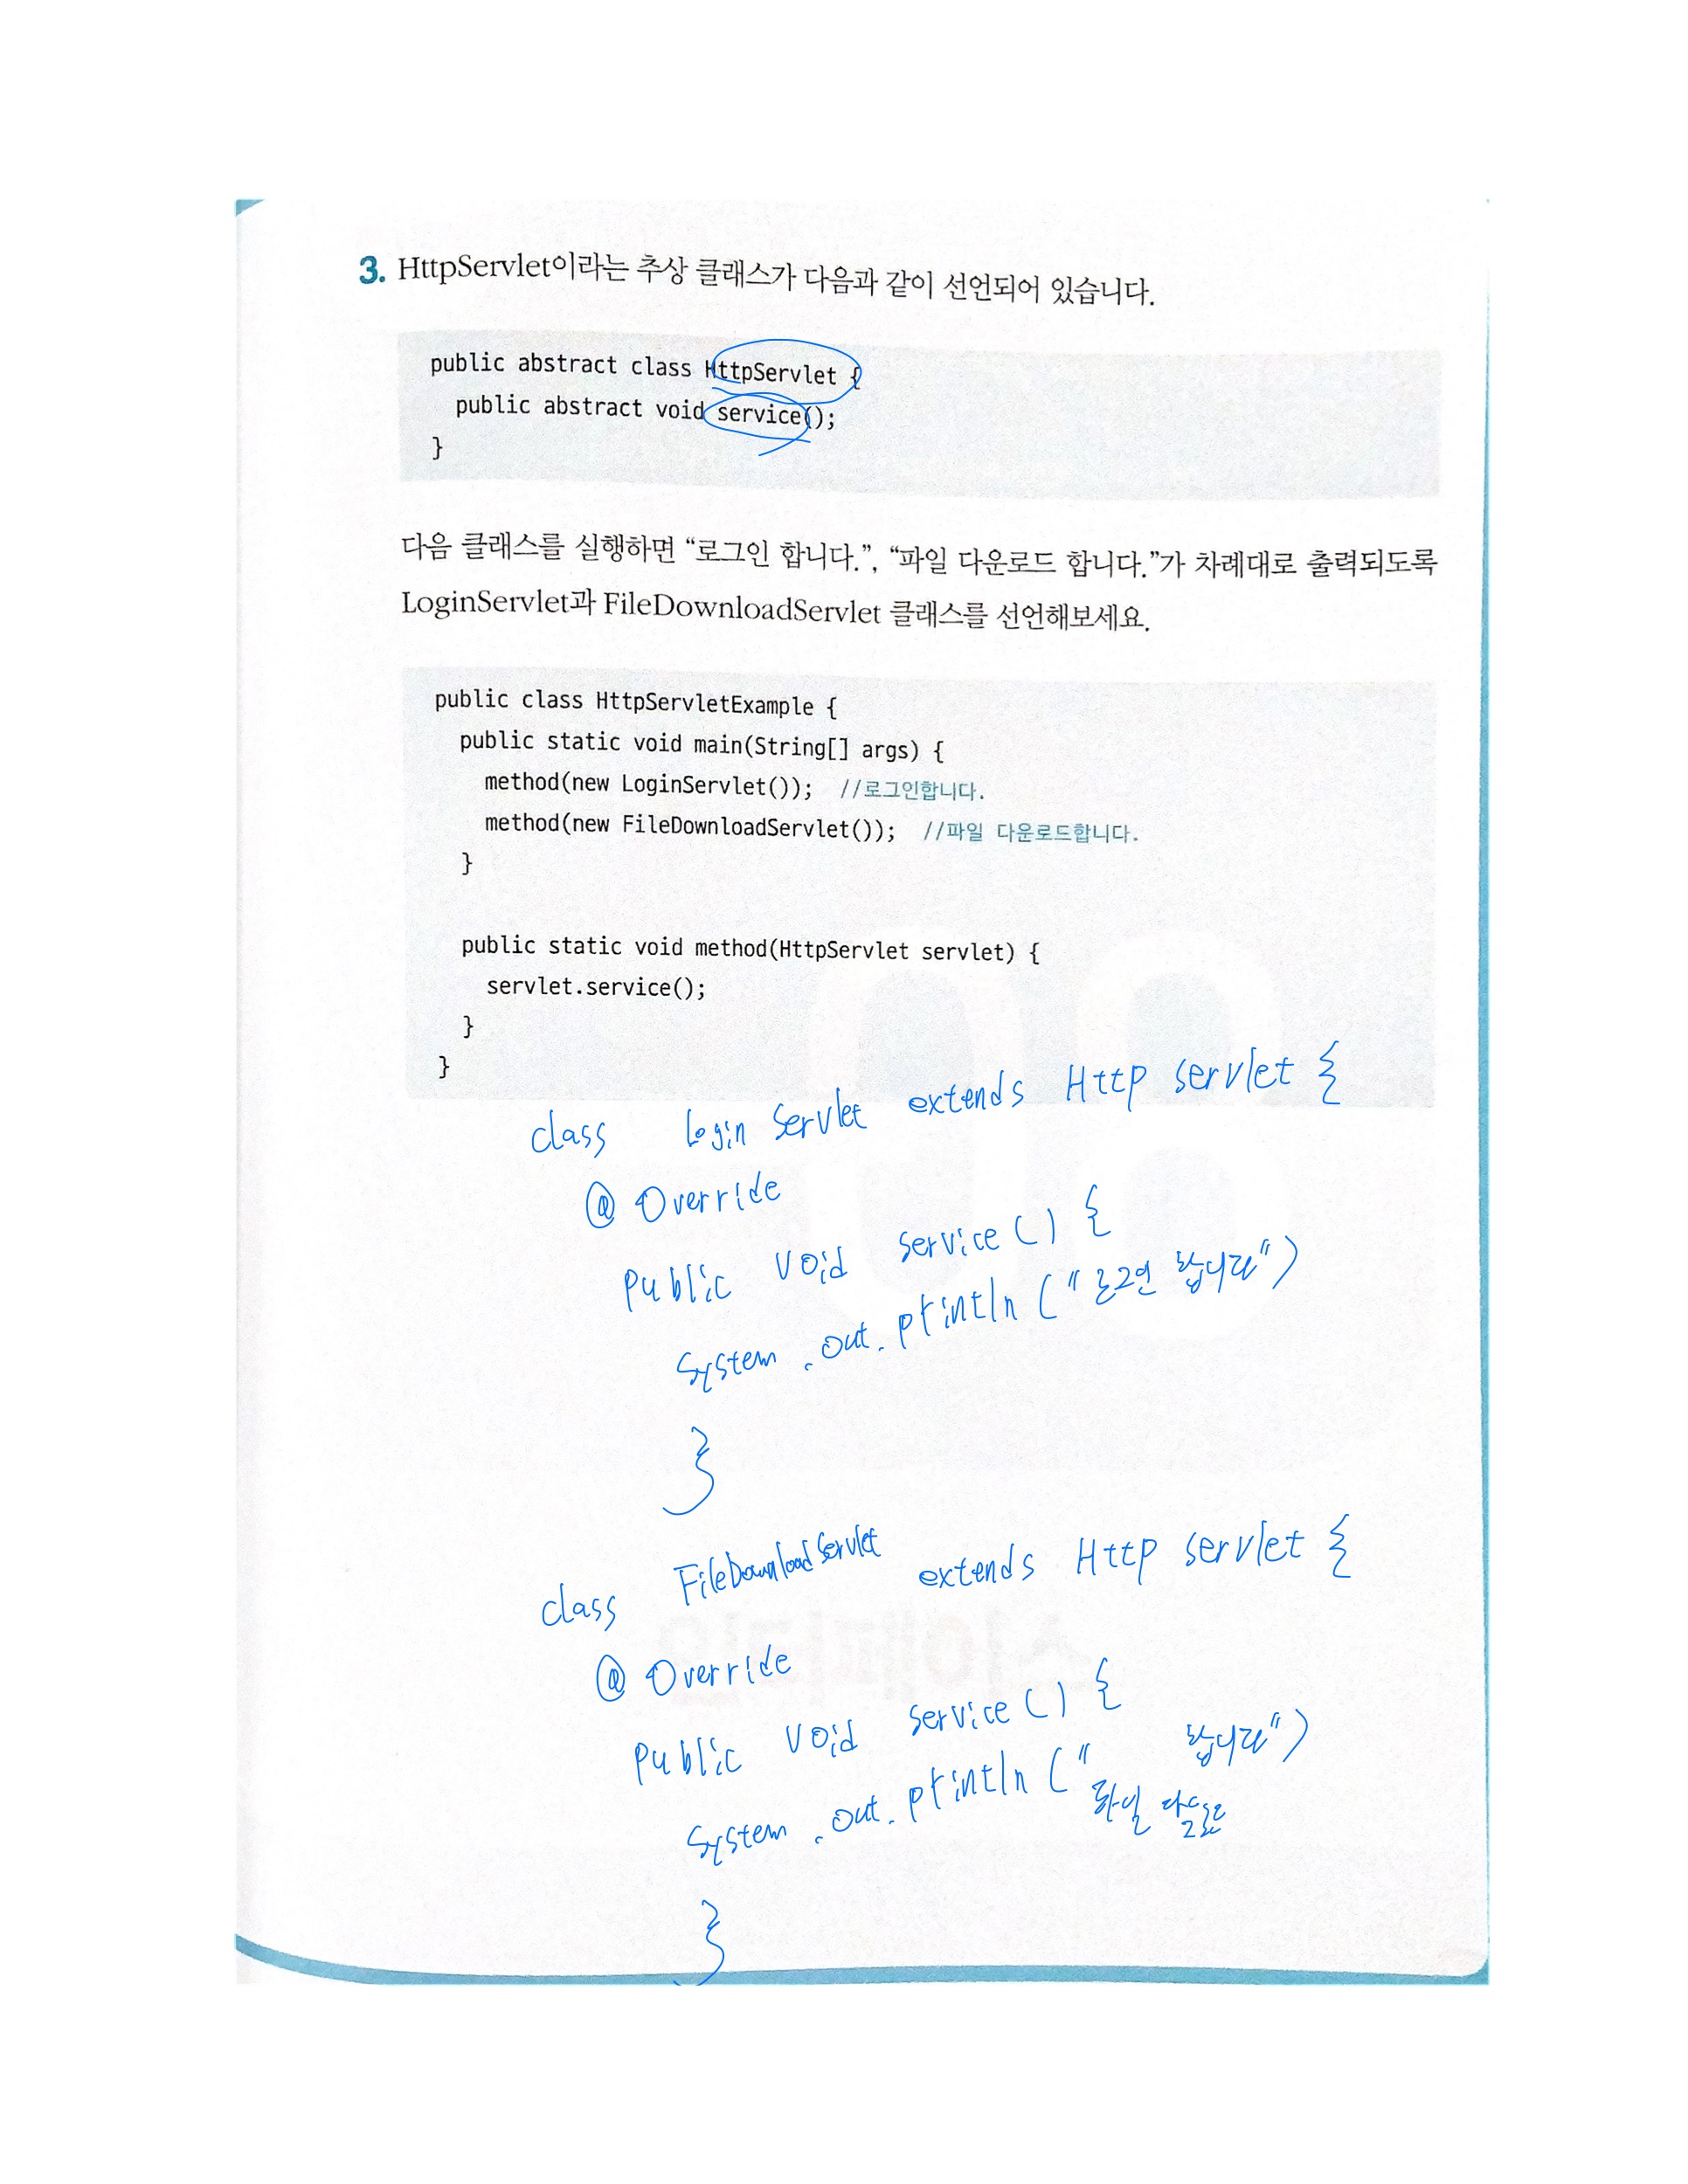 3. HttpServlet이라는 추상 클래스가 다음과 같이 선언되어 있습니다.
public abstract class HttpServlet {
public abstract void service();
}
다음 클래스를 실행하면 “로그인 합니다.”, “파일 다운로드 합니다.”가 차례대로 출력되도록
LoginServlet과 FileDownloadServlet 클래스를 선언해보세요.
public class HttpServletExample {
public static void main(String[] args) {
method(new LoginServlet()); //로그인합니다.
method(new FileDownloadServlet()); //파일 다운로드합니다.
}
public static void method(HttpServlet servlet) {
servlet.service();
}
}
class Login Servlet extends Http servlet {
@ Override
public void service() {
System.out.println("로그인 합니다")
}
class FileDownloadServlet extends Http servlet {
@ Override
public void service() {
System.out.println(" 파일 합니다")
}